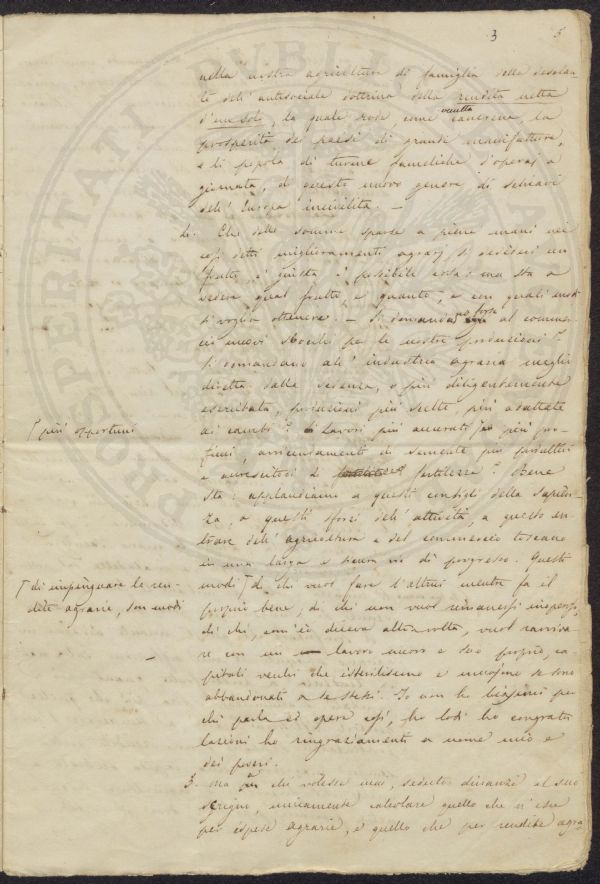 3 5
nella nostra agricoltura di famiglia della desolan-
te dell'antisociale dottrina della rendita netta
d'un solo, la quale rode come venetta cancrena, la
prosperità dei paesi di grande manifattura,
e li popola di turme fameliche d'operaj a
giornata, di questo nuovo genere di schiavi
dell'Europa incivilita. —
2. Che delle somme sparse a piene mani nei
così detti miglioramenti agrarj, si desideri un
frutto, è giusta è possibile cosa: ma sta a
vedere qual frutto, e quanto, e con quali modi
si voglia ottenere. — Si domandano forse al commer-
cio nuovi sbocchi per le nostre produzioni?
Si domandano all'industria agraria meglio
diretta dalla scienza, o più diligentemente
esercitata, produzioni più scelte, più adattate
ai cambi? Lavori più accurati, più pro-
ficui, avvicendamenti di semente più produttivi
e accrescitori di fertilezza? Bene
sta: applaudiamo a questi consigli della sapien-
za, a questi sforzi dell'attività, a questo en-
trare dell'agricoltura e del commercio toscano
in una larga e sicura via di progresso. Questi
modi di chi vuol fare l'altrui mentre fa il
proprio bene, di chi non vuol rimanersi inoperoso,
di chi, com'io diceva altra volta, vuol ravviva-
re con un lavoro nuovo e suo proprio, ca-
pitali vecchi che isteriliscono e se sono
abbandonati a se stessi. Io non ho biasimi per
chi parla ed opera così, ho lodi ho congratu-
lazioni ho ringraziamenti a nome mio e
dei poveri.
3. Ma chi volesse mai, seduto dinanzi al suo
scrigno, unicamente calcolare quello che n'esce
per ispese agrarie, e quello che per rendite agra-
più opportuni
di impinguare le ren-
dite agrarie, son modi
PROSPERITATI PVBLICAE A